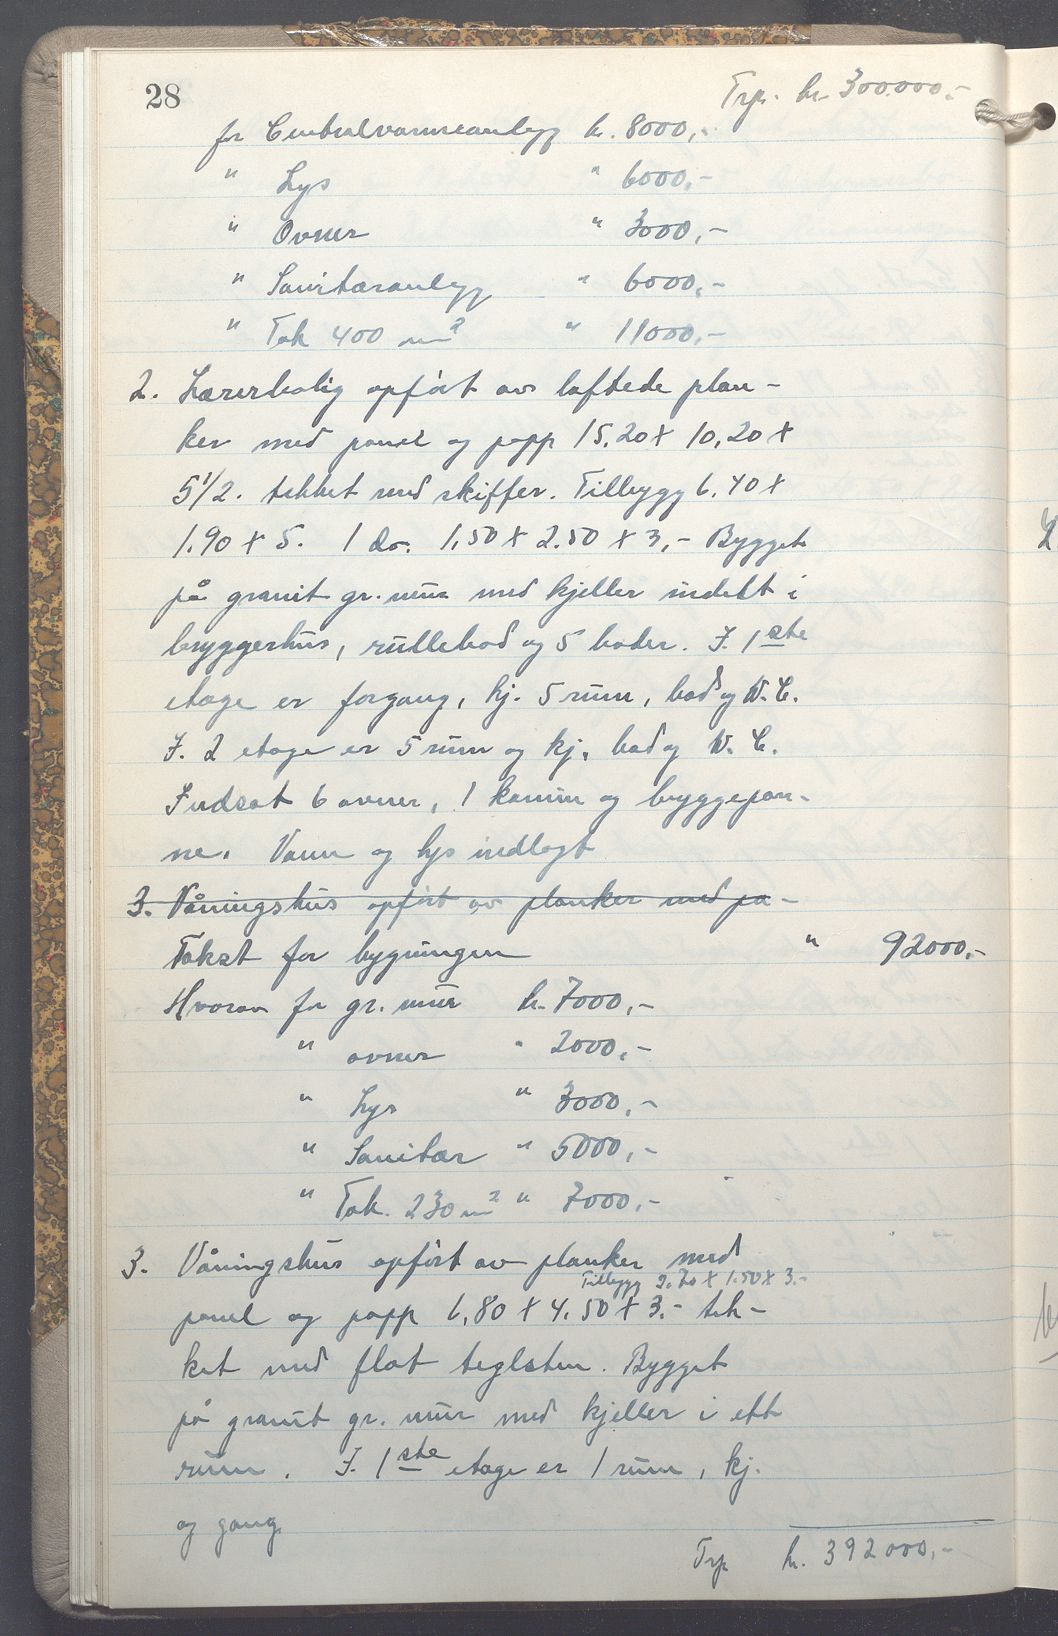 28
Trp. kr. 300.000,-
for Centralvarmeanlegg kr. 8000,-
" Lys " 6000,-
" Ovner " 3000,-
" Sanitæranlegg " 6000,-
" Tak 400 m² " 11000,-
2. Lærerbolig opført av laftede plan-
ker med panel og papp 15,20 x 10,20 x
5 1/2. tekket med skiffer. Tilbygg 6,40 x
1.90 x 5. 1 do. 1,50 x 2.50 x 3,- Bygget
på granit gr. mur med kjeller indelt i
bryggerhus, rullebod og 5 boder. I. 1ste
etage er forgang, kj. 5 rum, bad og W.C.
I. 2 etage er 5 rum og kj. bad og W.C.
Indsat 6 ovner, 1 kamin og bryggepan-
ne. Vann og lys indlagt
3. Våningshus opført av planker med pa-
Takst for bygningen " 92000,-
Hvorav for gr. mur kr. 7000,-
" ovner " 2000,-
" Lys " 3000,-
" Sanitær " 5000,-
" Tak. 230 m² " 7000,-
3. Våningshus opført av planker med
Tilbygg 2.70 x 1.50 x 3.-
panel og papp 6,80 x 4.50 x 3.- tek-
ket med flat teglsten. Bygget
på granit gr. mur med kjeller i ett
rum. I. 1ste etage er 1 rum, kj.
og gang.
Trp kr. 392000,-